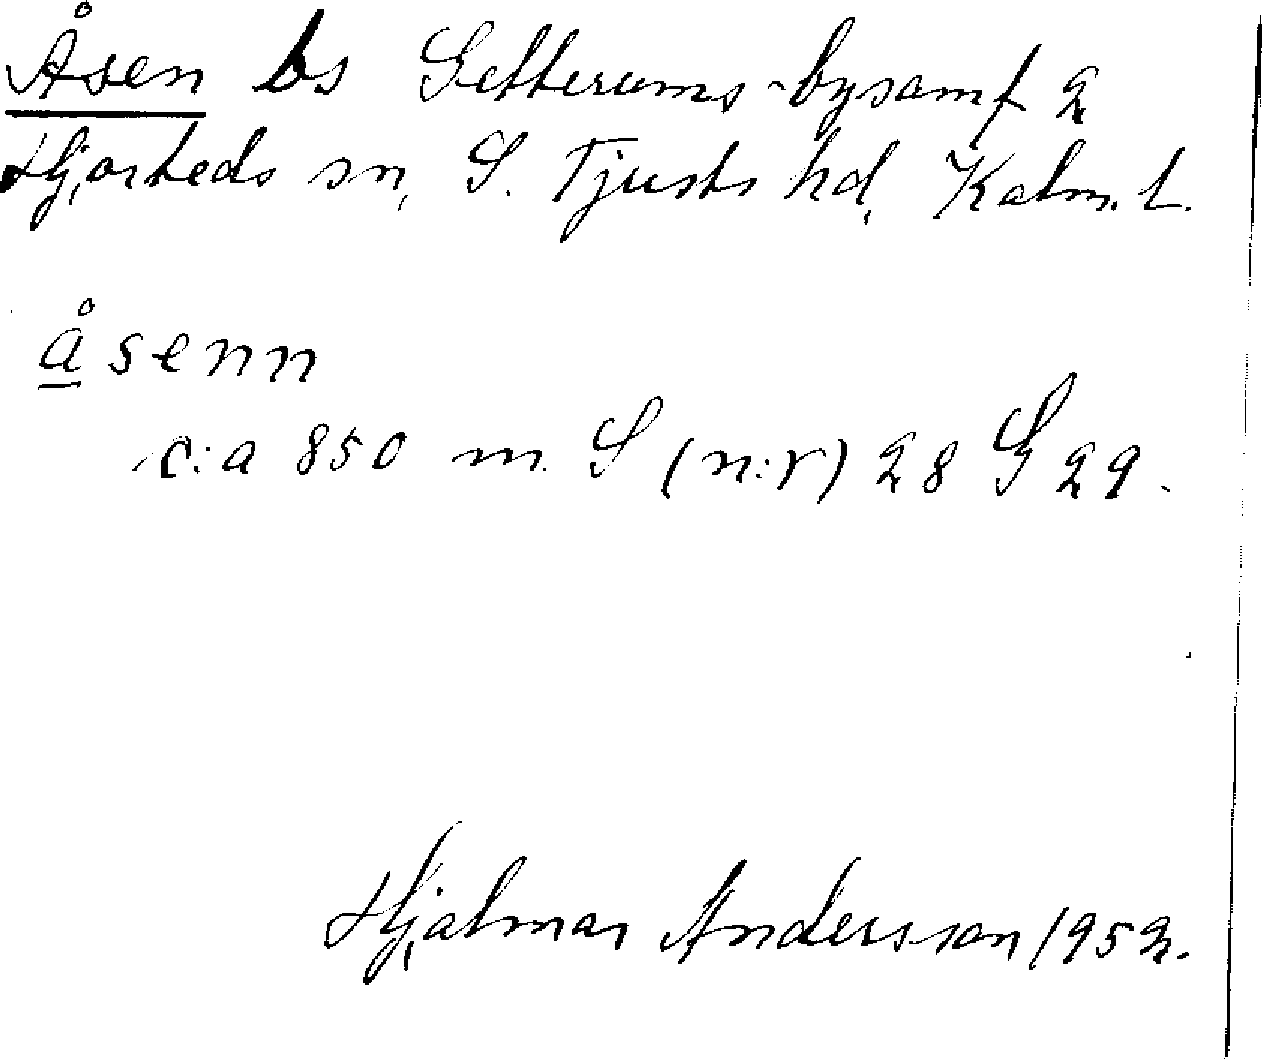 Åsen bs Getterums-bysamf 2
Hjorteds sn, S. Tjusts hd, Kalm. l.
åsenn
c:a 850 m. S (n:r) 28 G 29.
Hjalmar Andersson 1952.